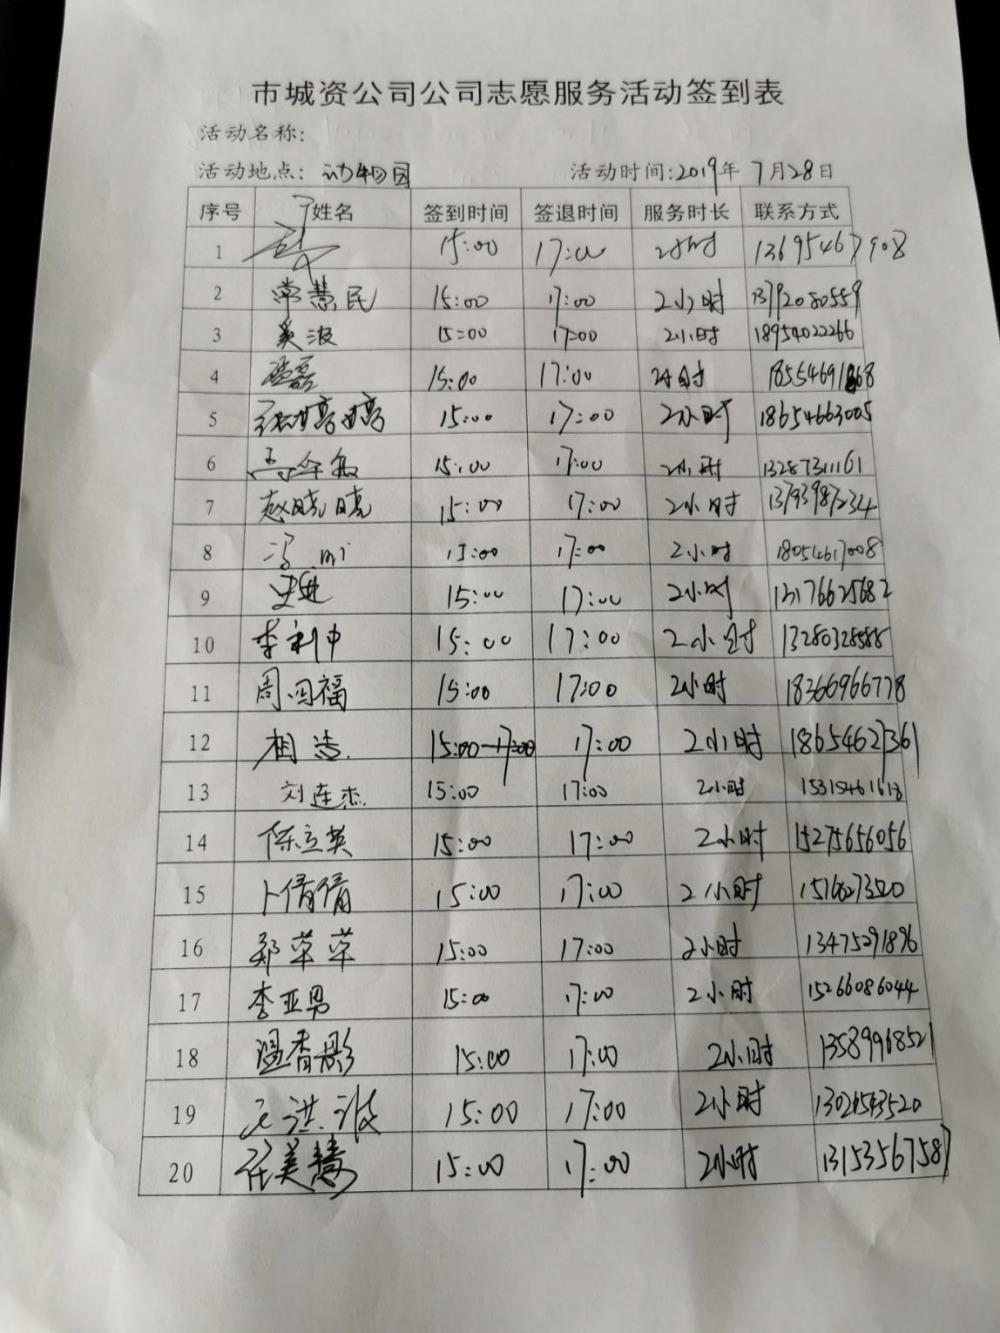 市城资公司公司志愿服务活动签到表
活动名称:
活动地点: 动物园 活动时间:2019年7月28日
序号 姓名 签到时间 签退时间 服务时长 联系方式
1 15:00 17:00 2小时 13695467908
2 常慧民 15:00 17:00 2小时 13792080559
3 吴波 15:00 17:00 2小时 18954022266
4 15:00 17:00 2小时
5 张婷婷 15:00 17:00 2小时 18654663005
6 15:00 17:00 2小时 13287311161
7 赵晓晓 15:00 17:00 2小时 13793987234
8 15:00 17:00 2小时 18054617008
9 史进 15:00 17:00 2小时 13176625682
10 李利中 15:00 17:00 2小时 13280328588
11 周冈福 15:00 17:00 2小时 18366966778
12 相浩 15:00-17:00 17:00 2小时 18654627361
13 刘连杰 15:00 17:00 2小时 15315461618
14 陈立英 15:00 17:00 2小时 15275656056
15 卜倩倩 15:00 17:00 2小时
16 郑苹苹 15:00 17:00 2小时 13475291896
17 李亚男 15:00 17:00 2小时 15266086044
18 温香彤 15:00 17:00 2小时 13589996852
19 王洪波 15:00 17:00 2小时
20 任美慧 15:00 17:00 2小时 13153567587